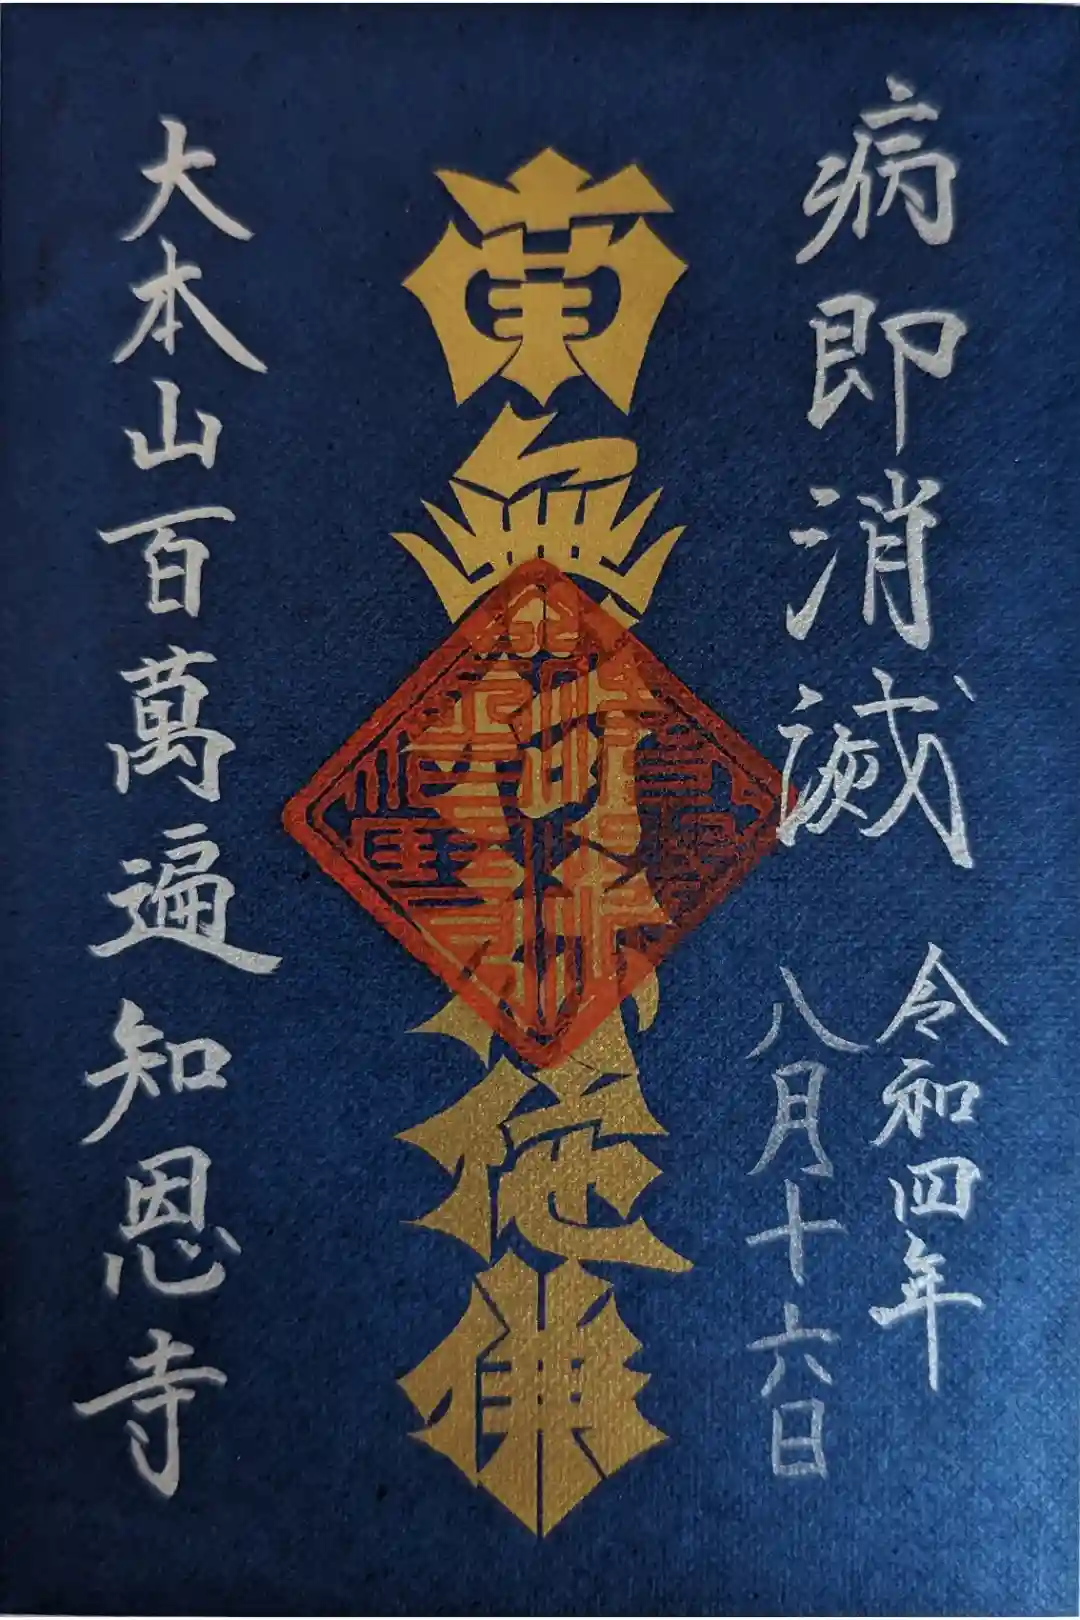 病即消滅
令和四年
八月十六日
南無阿弥陀佛
大本山百萬遍知恩寺